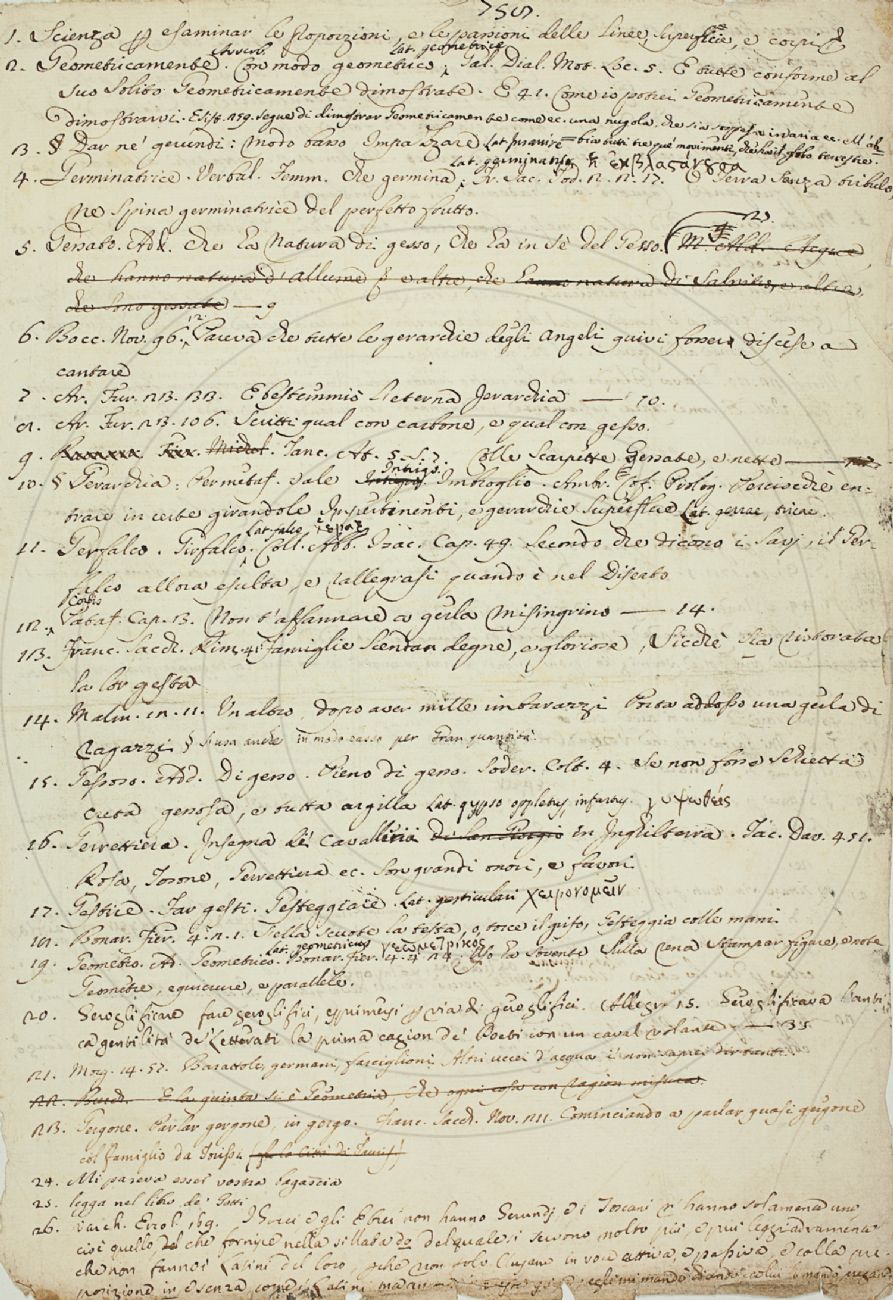 1. Scienza p esaminar le proporzioni, e le passioni delle Linee, superficie, e corpi
2. Geometricamente. Avverb. Con modo geometrico. Lat. geometrice. Gal. Dial. Mot. Loc. 5. E tutte conforme al
suo solito Geometricamente dimostrate. E 41. Come io potrei Geometricamente
dimostrarvi.
3. § Dar ne' gerundi: modo basso Impazzare
4. Germinatrice. Verbal. Femm. Che germina, Lat. germinatrix, Fr. Sac. Tod. 2. 12. 17. O Terra senza tribulo,
ne spina germinatrice del perfetto frutto.
5. Gessato. Add. Che ha natura di gesso, che ha in se del Gesso. M. Ald. Acque
che hanno natura d'allume e altre, che hanno natura di Salnitro, e altre,
che sono gessate — 9
6. Bocc. Nov. 96. 12. Pareva che tutte le gerarchie degli Angeli quivi fossero discese a
cantare
7. Ar. Fur. 23. 133. E bestemmiò l'eterna Jerarchia — 10.
8. Ar. Fur. 23. 106. Scritti qual con carbone, e qual con gesso.
9. Tanc. At. 5. S. 7. Colle scarpette gessate, e nette
10. § Gerarchia: Permutaf. vale Intrigo. Imbroglio. Ambr. Cof. Prolog. Perciocchè en-
trare in certe girandole Impertinenti, e gerarchie superflue Lat. gerrae, tricae.
11. Gerfalco. Girfalco. Lat. falco, ἱέραξ Coll. Abb. Isac. Cap. 49. Secondo che dicono i Savj, il Ger-
falco allora esulta, e rallegrasi quando è nel Diserto
12. Pataf. Cap. 13. Non t'affannare a geila misingrino — 14.
13. Franc. Sacch. Rim. 45 Famiglie scendon degne, e gloriose, Sicchè sia ristorata
la lor gesta
14. Malm. in. 11. Un altro, dopo aver mille imbarazzi Porta addosso una geila di
Ragazzi § Si usa anche in modo basso per gran quantità
15. Gessoso. Add. Di gesso. Pieno di gesso. Soder. Colt. 4. Se non fosse schietta
creta gessosa, e tutta argilla Lat. gypso oppletus, infartus. γυψωθείς
16. Gerrettiera. Insegna de' Cavallieri di San Giorgio in Inghilterra. Tac. Dav. 451.
Rosa, Tosone, Gerrettiera ec. Son grandi onori, e favori
17. Gestire. Far gesti. Gesteggiare. Lat. gesticulari χειρονομεῖν
18. Bonar. Fier. 4. n. 1. Quella scuote la testa, o torce il grifo, Gesteggia colle mani.
19. Geometro. Ad. Geometrico. Lat. geometricus γεωμετρικός Bonar. Fier. 4. 4. 24. Uso ha sovente sulla rena stampar figure, e note
Geometre, equicrure, e parallele.
20. Geroglificare fare geroglifici, esprimersi p via di geroglifici. Allegr. 15. Geroglificava l'anti
ca gentilità de' Letterati la prima cagion de' Poeti con un caval volante — 33
21. Morg. 14. 57. Barattole, germani, farciglioni, Altri uccei d'acqua
22. E la quinta si è Geometria, che ogni cosa con ragion misura.
23. Gergone. Parlar gergone, in gergo. Franc. Sacch. Nov. 211. Cominciando a parlar quasi gergone
col famiglio da
24. Mi pareva esser vostra bagascia
25. legga nel libro de'
26. Varch. Ercol. 169. I Greci e gli Ebrei non hanno Gerundj e i Toscani n' hanno solamente uno
cioè quello che fornisce nella sillaba do del quale si servono molto più, e più leggiadramente
che non fanno i Latini del loro, perchè non solo l'usano in voce attiva e passiva, e colla pre-
posizione in e senza, come i Latini